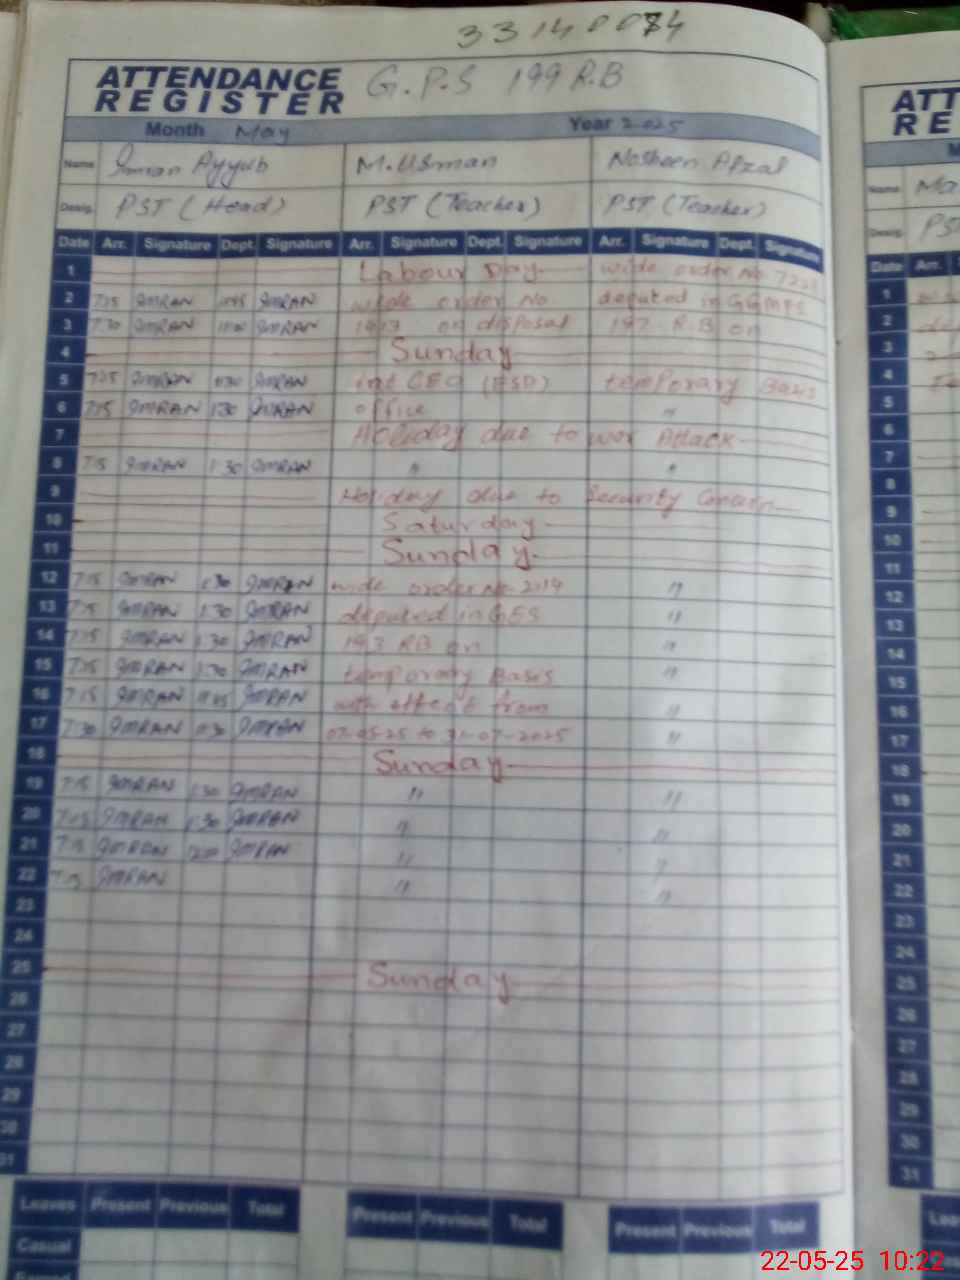 33140074
ATTENDANCE
REGISTER
G.P.S 199 R.B
Month May Year 2025
Name Imran Ayyub M.Usman Nosheen Afzal
Desig. PST (Head) PST (Teacher) PST (Teacher)
Date Arr. Signature Dept. Signature Arr. Signature Dept. Signature Arr. Signature Dept. Signature
1 Labour Day wide order No.
2 7:15 IMRAN 11:45 IMRAN wide order No deputed in GGMPS
3 7:30 IMRAN 11:00 IMRAN 1913 on disposal 197 R.B on
4 Sunday
5 7:15 IMRAN 1:30 IMRAN CEO office temporary Basis
6 7:15 IMRAN 1:30 IMRAN office "
7 Holiday due to war Attack
8 7:15 IMRAN 1:30 IMRAN " "
9 Holiday due to Security Concern
10 Saturday
11 Sunday
12 7:15 IMRAN 1:30 IMRAN wide order No. 2019 "
13 7:15 IMRAN 1:30 IMRAN deputed in GES "
14 7:15 IMRAN 1:30 IMRAN 193 RB on "
15 7:15 IMRAN 1:30 IMRAN temporary Basis "
16 7:15 IMRAN 11:45 IMRAN with effect from "
17 7:30 IMRAN 11:30 IMRAN 07-05-25 to 31-07-2025 "
18 Sunday
19 7:15 IMRAN 1:30 IMRAN " "
20 7:15 IMRAN 1:30 IMRAN " "
21 7:15 IMRAN 12:00 IMRAN " "
22 7:15 IMRAN " "
23
24
25 Sunday
26
27
28
29
30
31
Leaves Present Previous Total Present Previous Total Present Previous Total
Casual
ATT
RE
M
Name Ma
Desig. PS
Date Arr.
1
2
3
4
5
6
7
8
9
10
11
12
13
14
15
16
17
18
19
20
21
22
23
24
25
26
27
28
29
30
31
22-05-25 10:22